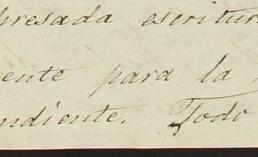 presada escritur
ente para la
ndiente. Todo